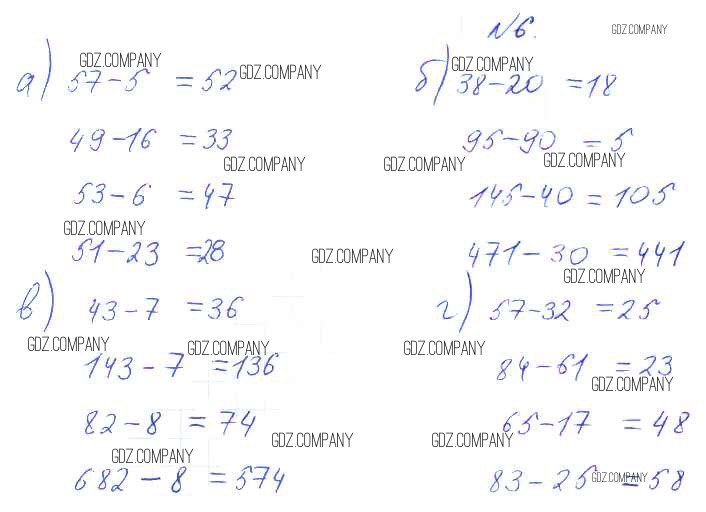 №6.
GDZ.COMPANY
а) 57-5 = 52
GDZ.COMPANY
GDZ.COMPANY
49-16 = 33
53-6 = 47
GDZ.COMPANY
51-23 =28
GDZ.COMPANY
б) 38-20 =18
GDZ.COMPANY
95-90 = 5
GDZ.COMPANY
GDZ.COMPANY
145-40 = 105
471-30 = 441
GDZ.COMPANY
GDZ.COMPANY
в) 43-7 = 36
GDZ.COMPANY
GDZ.COMPANY
143-7 =136
82-8 = 74
GDZ.COMPANY
GDZ.COMPANY
682-8 = 574
г) 57-32 = 25
GDZ.COMPANY
84-61 = 23
GDZ.COMPANY
65-17 = 48
GDZ.COMPANY
83-25 = 58
GDZ.COMPANY